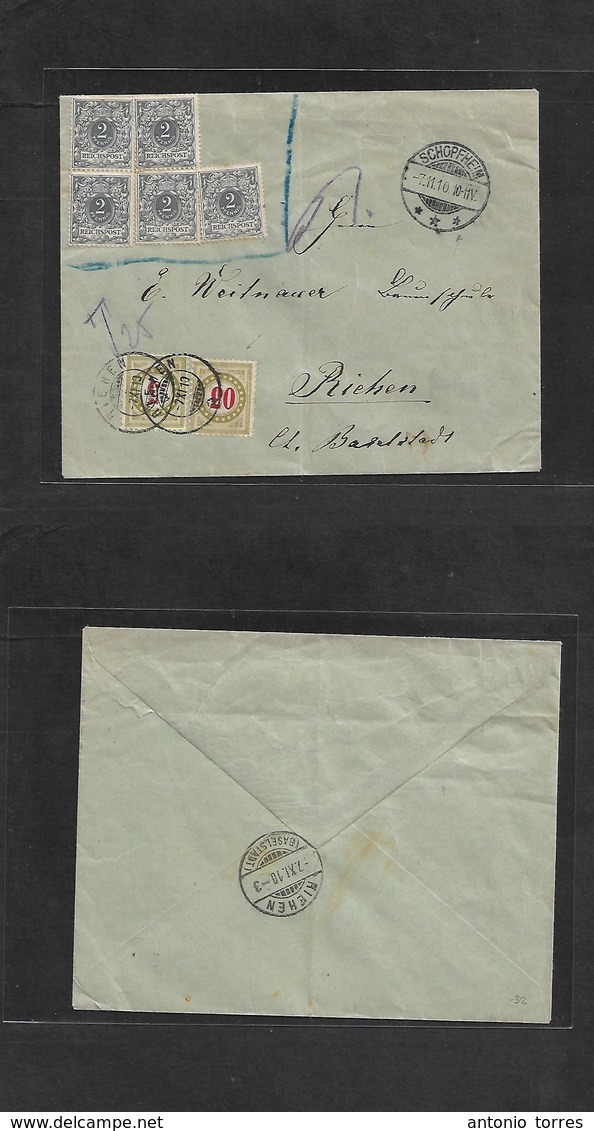 2 2
REICHSPOST REICHSPOST
2 2 2
REICHSPOST REICHSPOST REICHSPOST
SCHOPFHEIM
-7.11.10 10-11V.
T 25
E. Weitnauer Baumschule
RIEHEN
-7.XI.10
RIEHEN
-7.XI.10
20
Riehen
Ct. Baselstadt
(BASELSTADT)
-7.XI.10.-3
RIEHEN
-32
antonio torres